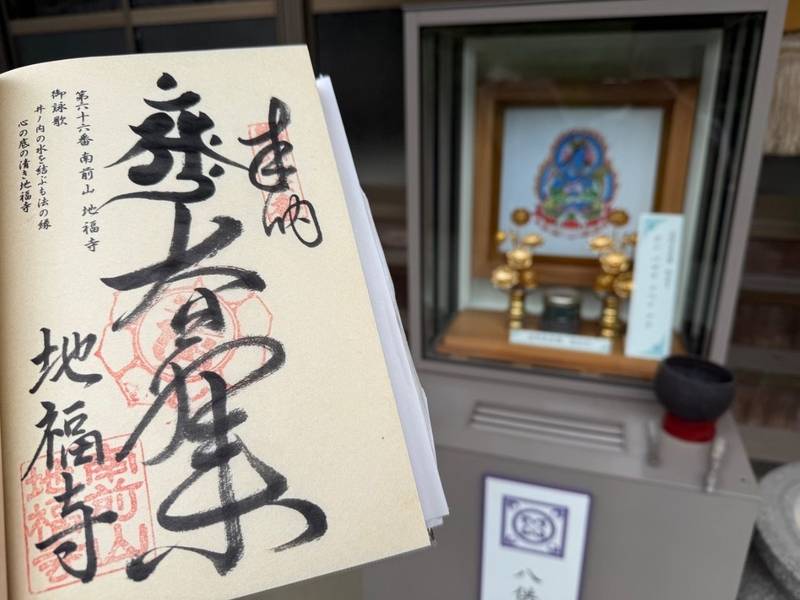 奉納
大日如来
第六十六番 南前山 地福寺
御詠歌
井ノ内の水を結ぶも法の縁
心の底の清き地福寺
地福寺
南前山
地福寺
八